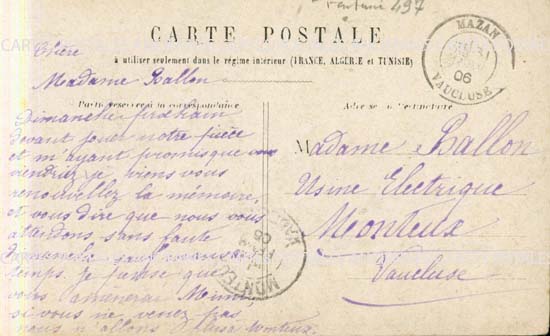 497
CARTE POSTALE
à utiliser seulement dans le régime intérieur (FRANCE, ALGÉRIE et TUNISIE)
MAZAN
06
VAUCLUSE
Chère
Madame Ballon
Partie réservée à la correspondance
Adresse du destinataire
Dimanche prochain
devant jouer notre pièce
et m'ayant promis que vous
viendrez je viens vous
renouvellez la mémoire,
et vous dire que nous vous
attendons sans faute
dimanche sauf mauvais
temps. je pense que
vous amènerai
si vous ne venez pas
nous n'allons plus Monteux.
Madame Ballon
Usine Electrique
Monteux
Vaucluse
MONTEUX
06